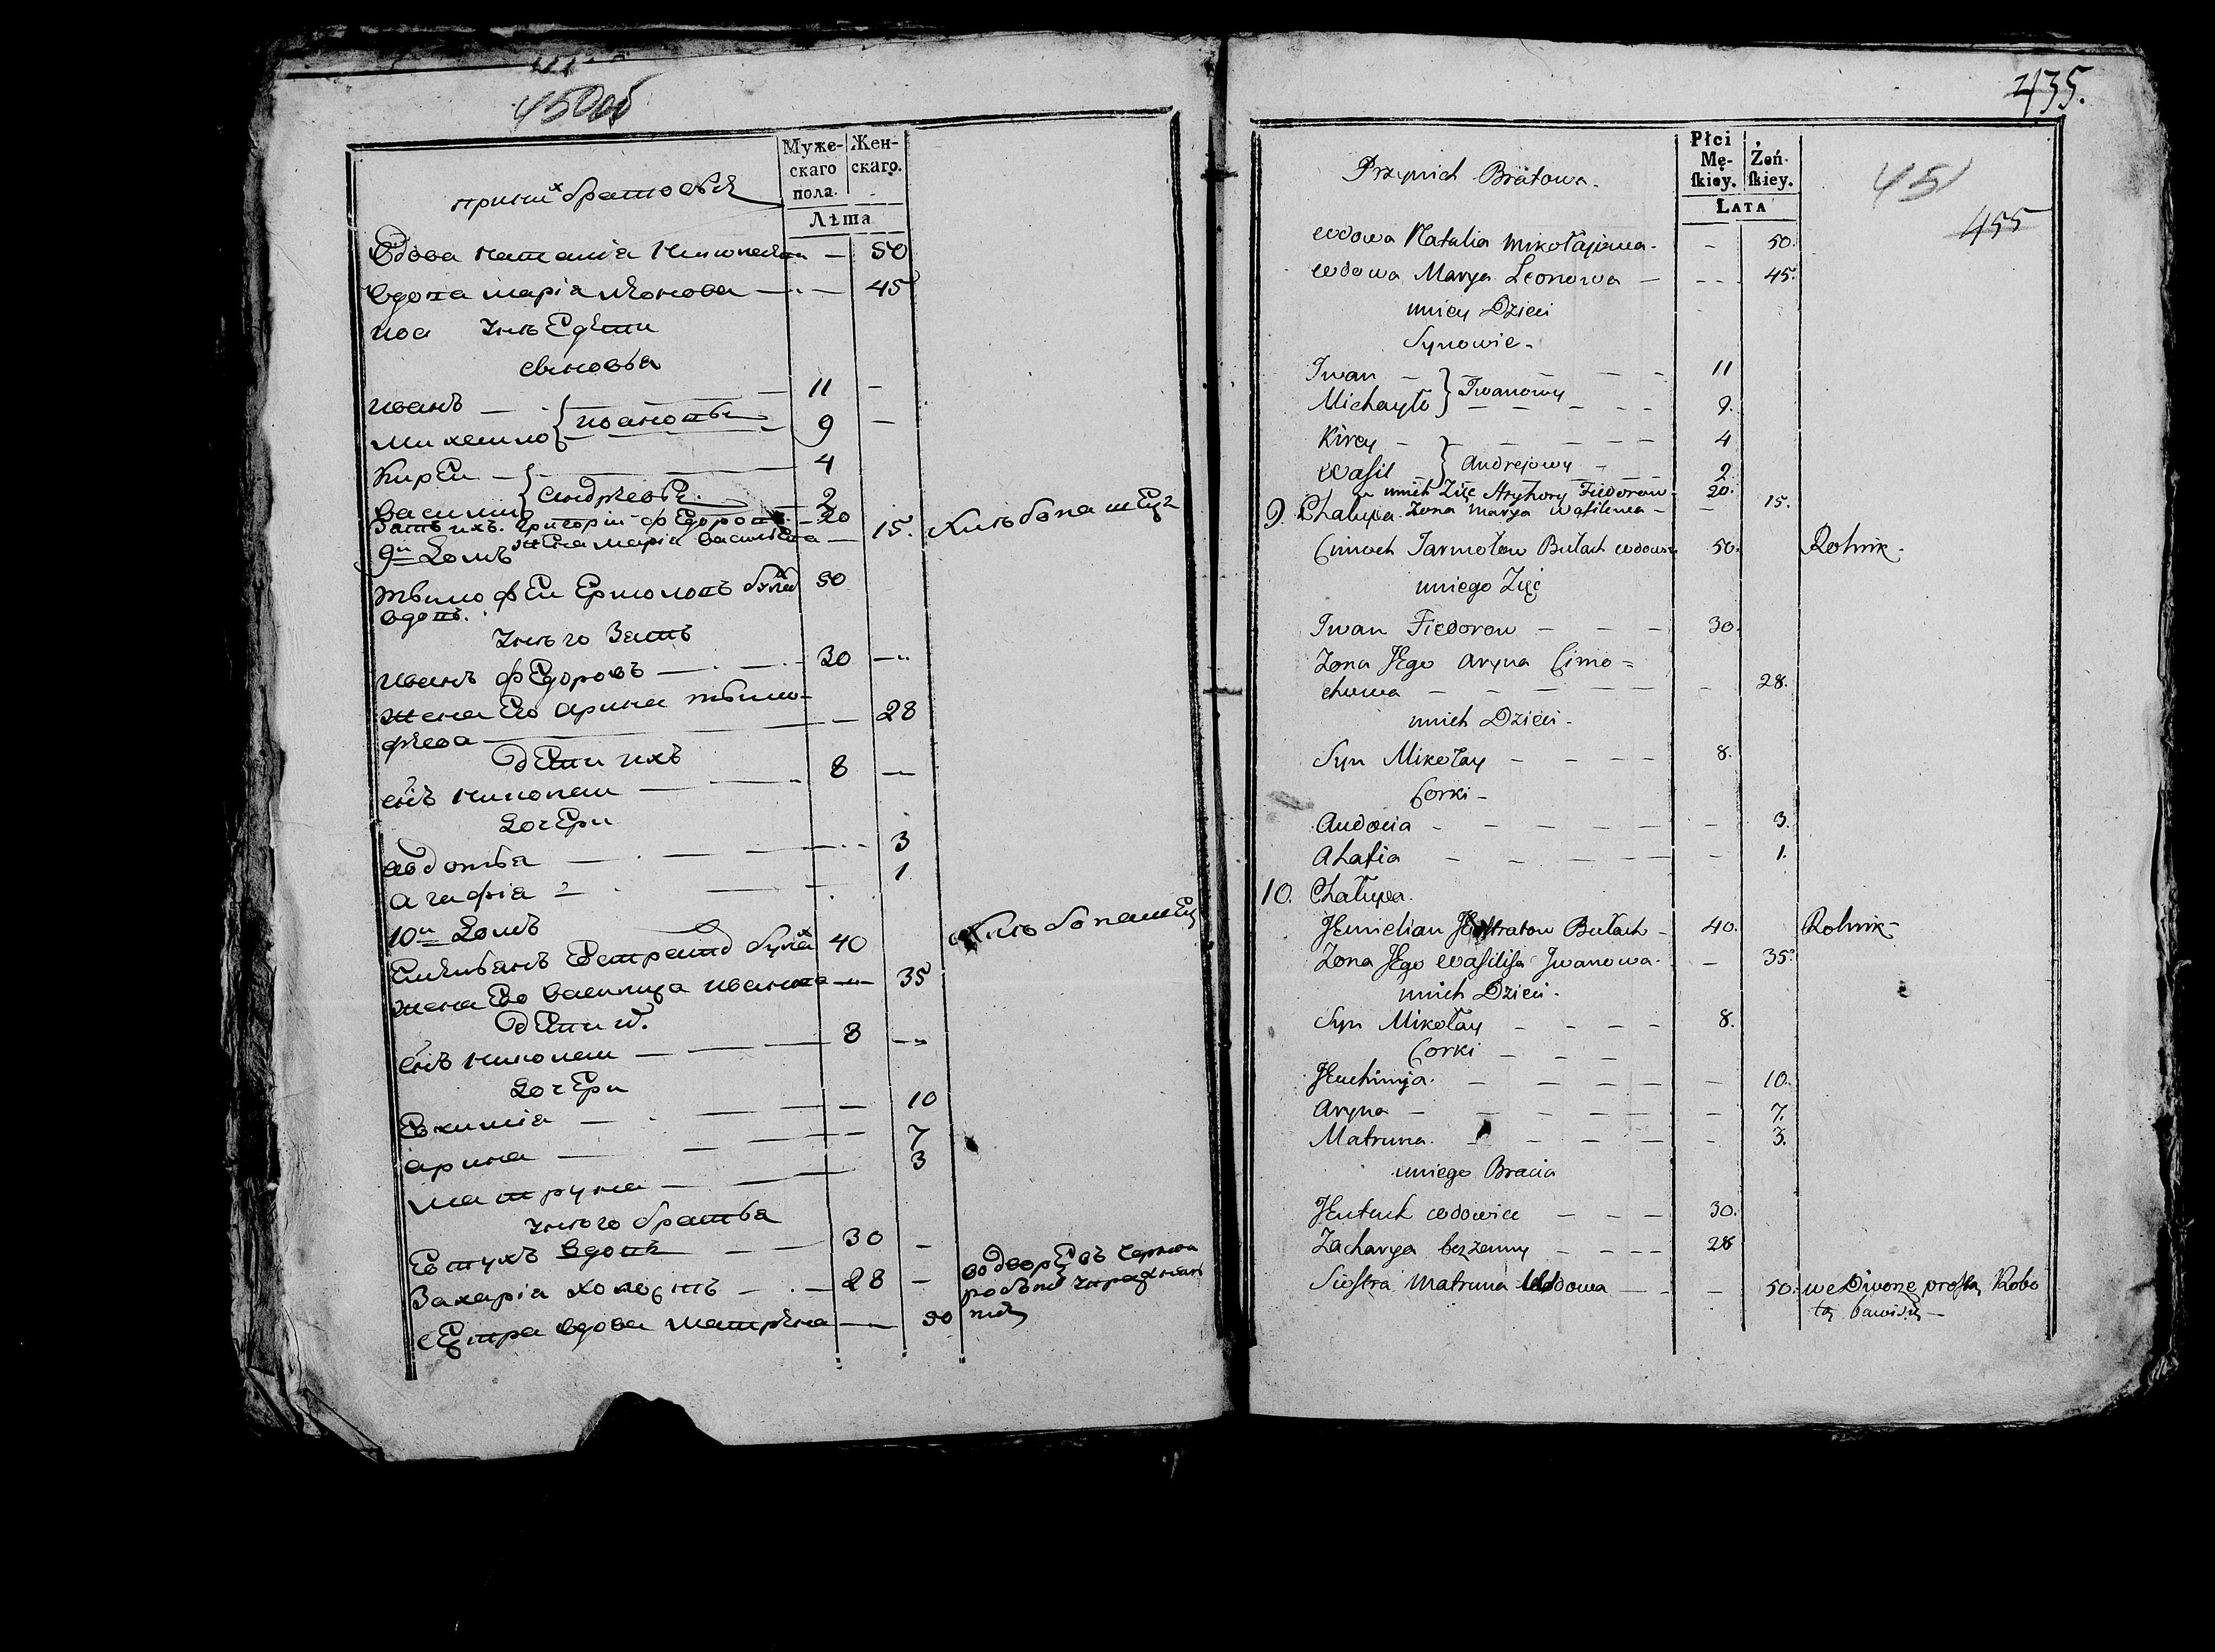 450об
Муже-
скаго
пола.
Жен-
скаго.
Лѣта
при них братовѣ
Вдова наталія Николаева — 50
Вдова марія леонова — 45
дѣти
сыновья
иванъ — 11 —
михаило { ивановы 9 —
Кирѣи — 4
василий { андрѣевы 2
Зать ихъ григоріи федоровъ — 20
жена марія васильева — 15. Хлѣбопашец
9й Домъ
тимофеи Ермоловъ Булах 50
вдовъ.
у него Зать
иванъ федоровъ — 30 —
жена Его арина тимо-
фѣева — 28
дѣти ихъ
снъ николаи — 8 —
Дочери
авдотья — 3
агафія — 1
10й Домъ
Емельянъ Естратов Булах 40 Хлѣбопашец
жена Ео василиса иванова — 35
дѣти их
снъ николаи — 8 —
Дочери
Евхимія — 10
арина — 7
матруна — 3
у него братья
Евтухъ вдовъ — 30 —
Захарія холост — 28 —
сестра вдова матрона — 50
435.
451
455
Płci
Mę-
ſkiey.
Żeń-
ſkiey.
Lata
Przynich Bratowa.
wdowa Natalia Mikołajowa - – 50.
wdowa Marya Leonowa – 45.
unicy Dzieci
Synowie -
Iwan – 11
Michayło } Iwanowy 9.
Kirey – 4
Waſil } Andrejowy – 2
u nnich Zięć Hryhory Fiedorow - 20.
9. Chałupa. Zona Marya Waſilewa – 15.
Cimoch Jarmołow Bułach wdowiec 50. Rolnik -
uniego Zięć
Iwan Fiedorow – 30.
Zona Jego Aryna Cimo =
chowa – 28.
unich Dzieci -
Syn Mikołay – 8.
Corki -
Audocia – 3.
Ahafia – 1.
10. Chałupa.
Jemielian Jestratow Bułach - 40. Rolnik -
Zona Jego Waſiliſa Jwanowa. – 35.
unich Dzieci -
Syn Mikołay – 8.
Corki –
Jeuchimja. – 10.
Aryna – 7.
Matruna. – 3.
uniego Bracia
Jeutuch wdowiec – 30.
Zacharya bezżenny – 28
Siostra Matruna Wdowa – 50. we Dworze prostą Robo
tą bawi się –